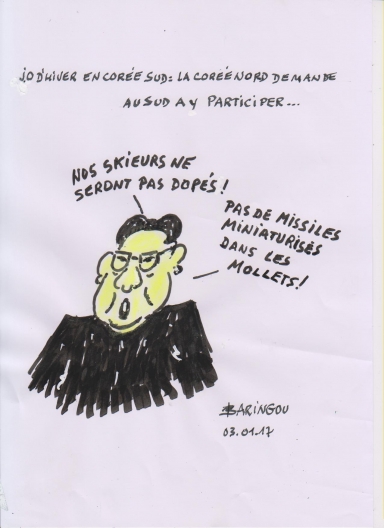 J.O D'HIVER EN CORÉE SUD: LA CORÉE NORD DEMANDE
AU SUD A Y PARTICIPER...
NOS SKIEURS NE
SERONT PAS DOPÉS!
PAS DE MISSILES
MINIATURISÉS
DANS LES
MOLLETS!
BARINGOU
03.01.17